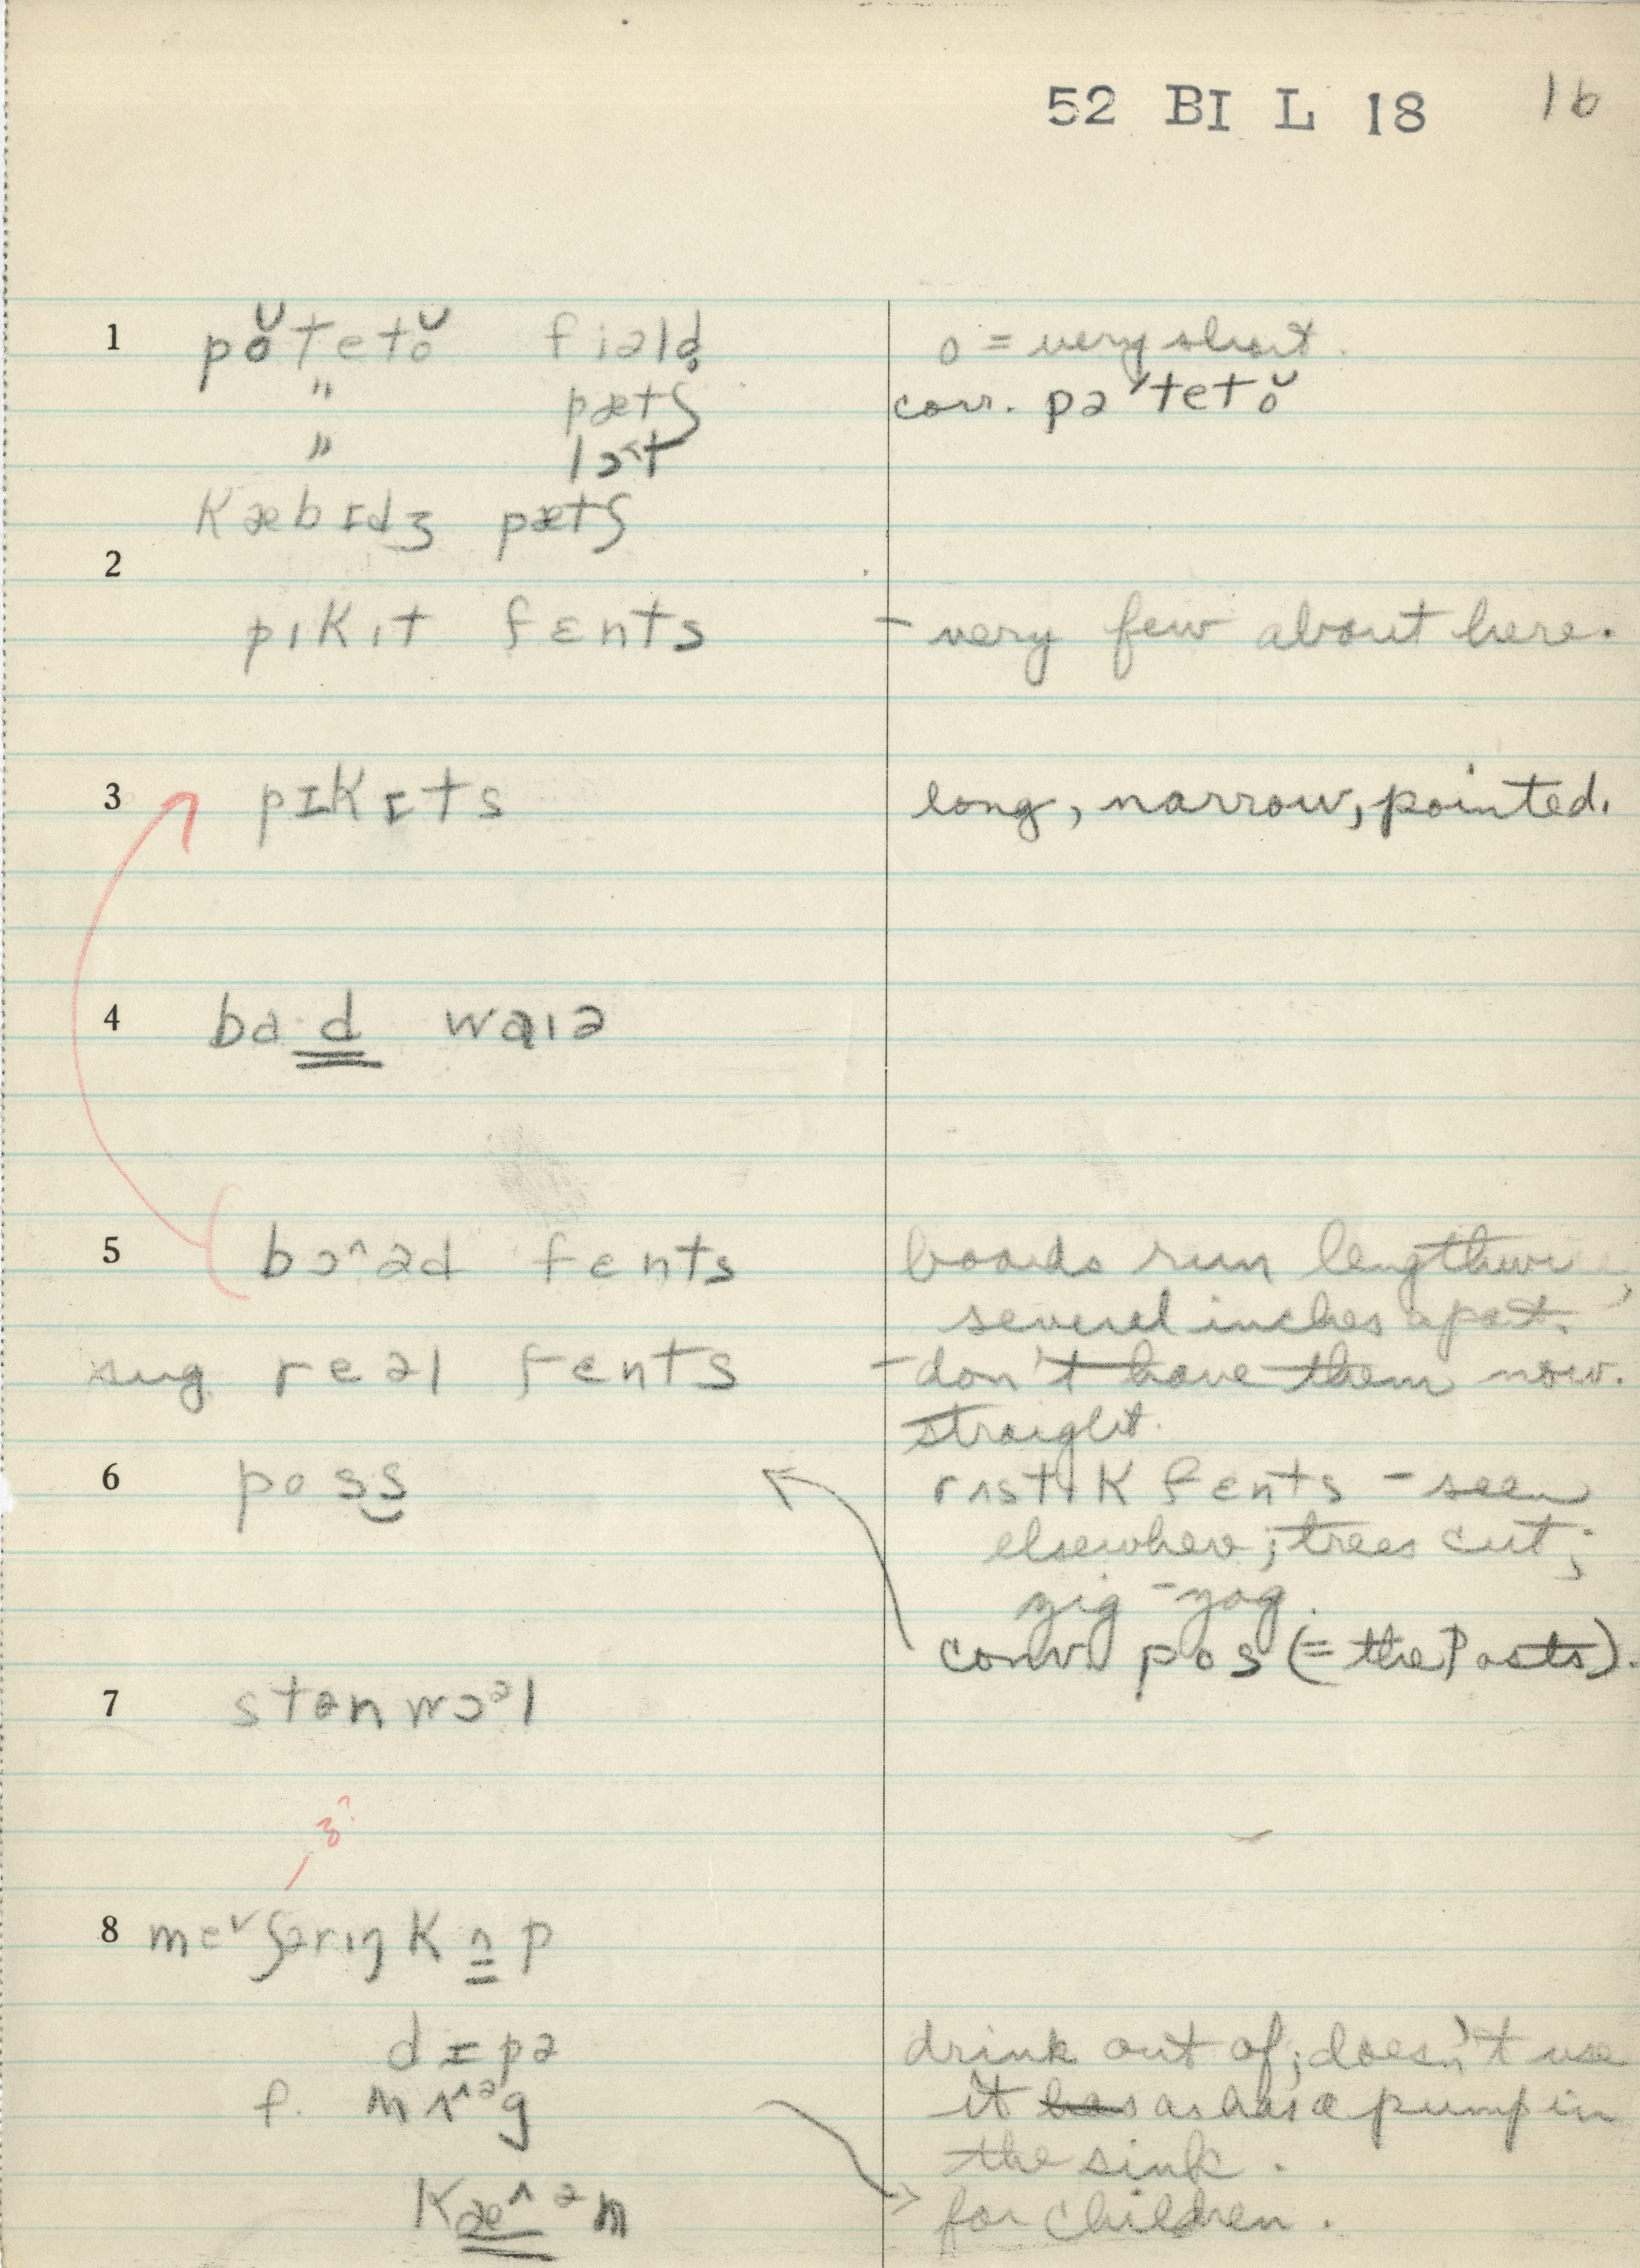 52 BI L 18 16
1 pŏtetŏ fiəld̥ o = very short.
" pætʃ corr. pə'tetŏ
" lɔ˂t
kæbɪdʒ pætʃ
2
pɪkɪt fɛnts - very few about here.
3 pɪkɪts long, narrow, pointed.
4 ba·d waɪə
5 bɔ^əd fɛnts boards run lengthwi
several inches apart.
sug. reəl fɛnts - don't have them now.
straight.
6 poss rʌstɪk fɛnts - seen
elsewhere; trees cut;
zig-zag.
conv. pos (= the Posts).
7 stɵnwɔᵊl
ʒ?
8 mɛ˅ʃərɪŋ kʌp
dɪpə drink out of; doesn't use
f. mʌ^ᵊg it has as has a pump in
the sink.
kæ^ᵊn for children.